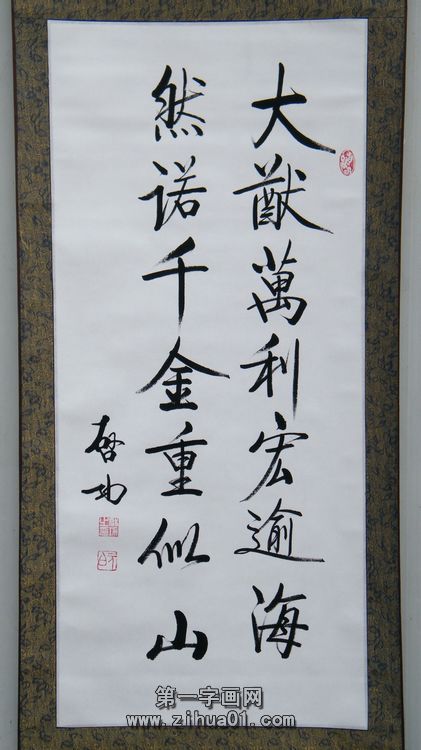 大猷萬利宏逾海
然諾千金重似山
啓功
第一字画网
www.zihua01.com